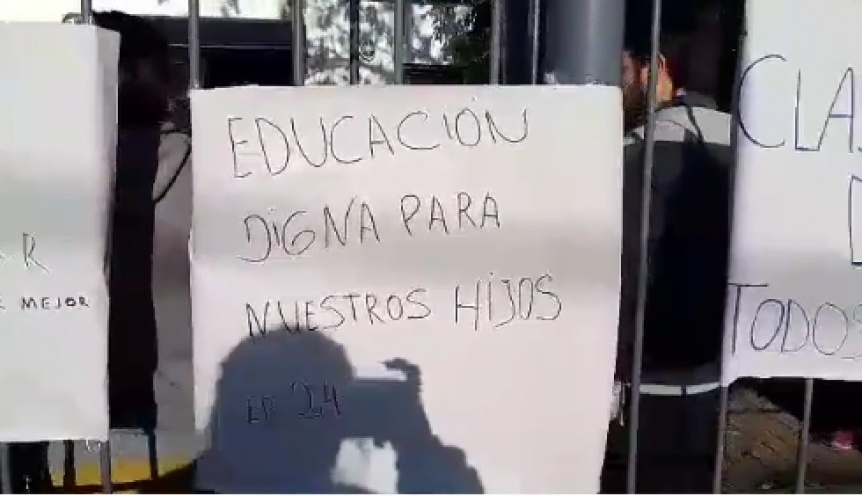 R
MEJOR
EDUCACIÓN
DIGNA PARA
NUESTROS HIJOS
EP 24
CLA
D
TODOS